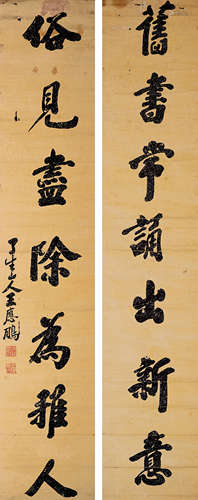 舊書常誦出新意
俗見盡除為雅人
王應鵬